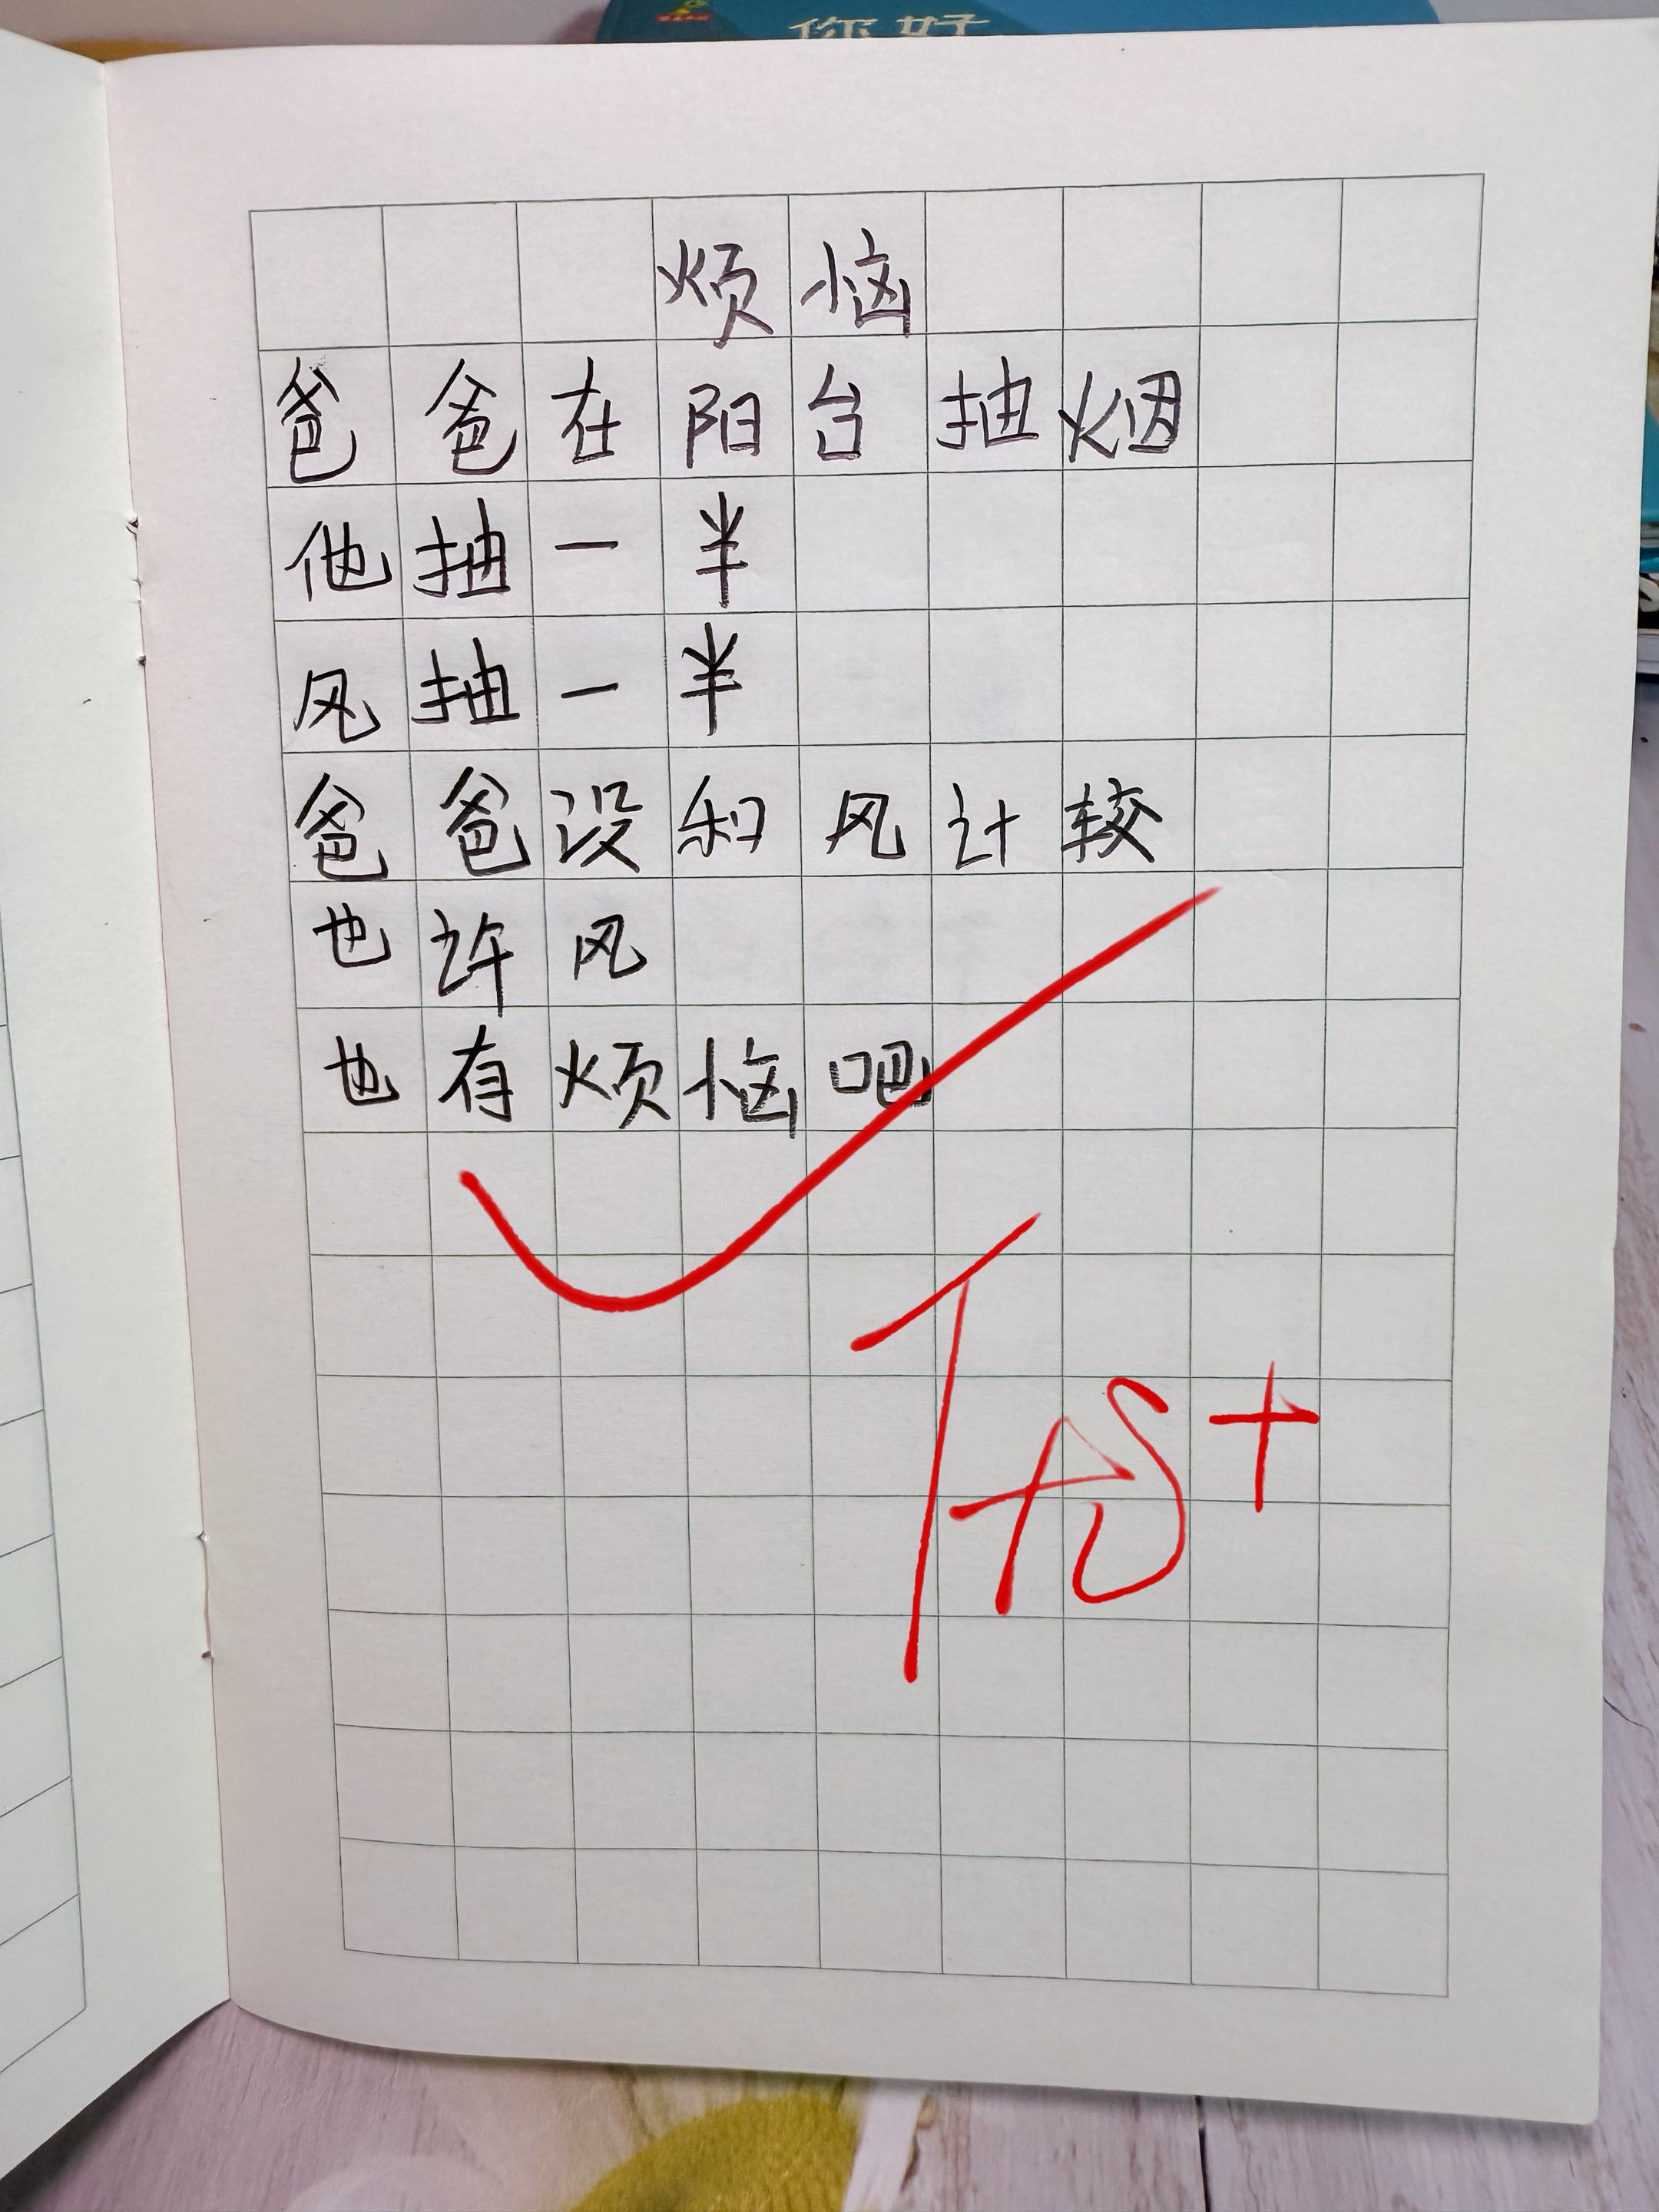 你好
烦恼
爸爸在阳台抽烟
他抽一半
风抽一半
爸爸没和风计较
也许风
也有烦恼吧